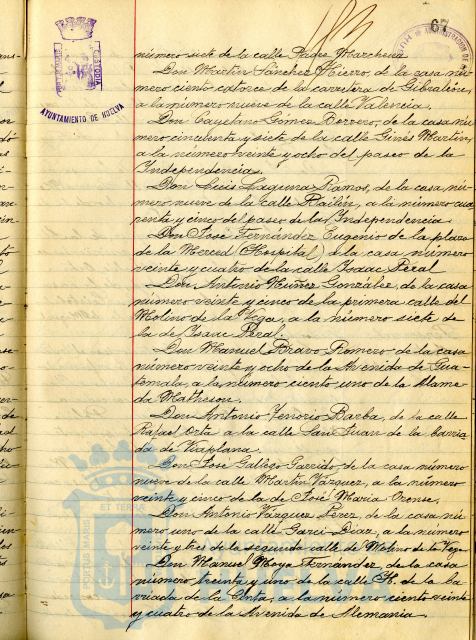 67
AYUNTAMIENTO DE HUELVA
número siete de la calle Padre Marchena
Don Martín Sánchez Hierro, de la casa nú-
mero ciento catorce de la carretera de Gibraleón,
a la número nueve de la calle Valencia.
Don Cayetano Gómez Borrero, de la casa nú-
mero cincuenta y siete de la calle Ginés Martín,
a la número veinte y ocho del paseo de la
Independencia.
Don Luis Laguna Ramos, de la casa nú-
mero nueve de la calle Bailén, a la número cua-
renta y cinco del paseo de la Independencia.
Don José Fernández Eugenio de la plaza
de la Merced (Hospital) de la casa número
veinte y cuatro de la calle Isaac Peral
Don Antonio Núñez González, de la casa
número veinte y cinco de la primera calle del
Molino de la Vega, a la número siete de
la de Isaac Peral.
Don Manuel Bravo Romero de la casa
número veinte y ocho de la Avenida de Gua-
témala, a la número ciento uno de la Alame-
da Matheson.
Don Antonio Tenorio Barba, de la calle
Rafael Orta a la calle San Juan de la barria
da de Viaplana.
Don José Gallego Garrido, de la casa número
nueve de la calle Martín Vázquez, a la número
veinte y cinco de la de José María Orense.
Don Antonio Vázquez Pérez de la casa nú-
mero uno de la calle Garci Díaz, a la número
veinte y tres de la segunda calle de Molino de la Vega
Don Manuel Moya Fernández, de la casa
número treinta y uno de la calle H. de la ba-
rriada de la Cinta, a la número ciento veinte
y cuatro de la Avenida de Alemania.